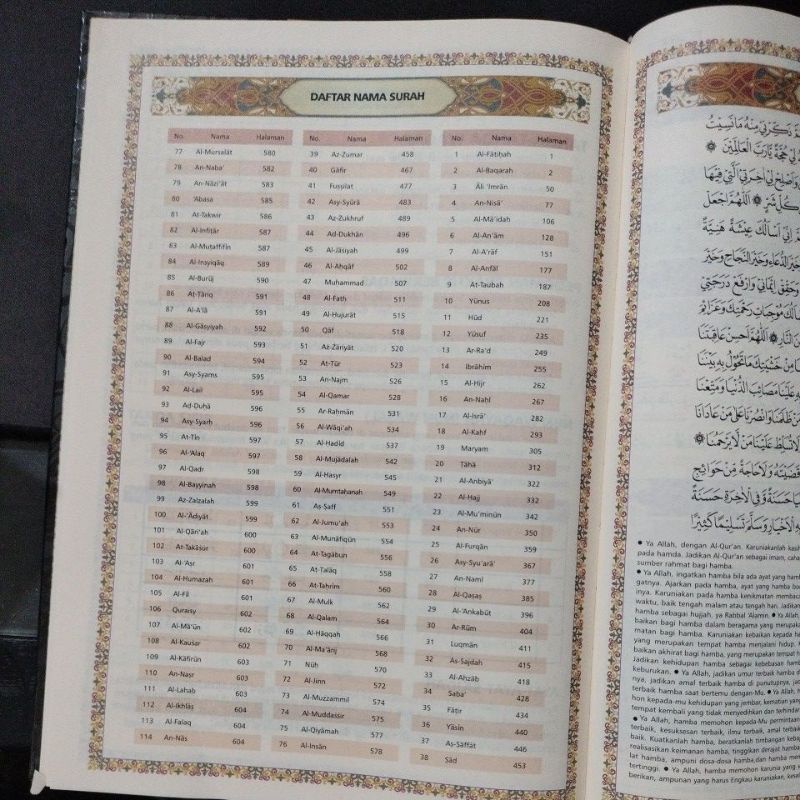 DAFTAR NAMA SURAH
No. Nama Halaman
1 Al-Fātiḥah 1
2 Al-Baqarah 2
3 Āli ʻImrān 50
4 An-Nisā' 77
5 Al-Mā'idah 106
6 Al-Anʻām 128
7 Al-Aʻrāf 151
8 Al-Anfāl 177
9 At-Taubah 187
10 Yūnus 208
11 Hūd 221
12 Yūsuf 235
13 Ar-Raʻd 249
14 Ibrāhīm 255
15 Al-Ḥijr 262
16 An-Naḥl 267
17 Al-Isrā' 282
18 Al-Kahf 293
19 Maryam 305
20 Ṭāhā 312
21 Al-Anbiyā' 322
22 Al-Ḥajj 332
23 Al-Mu'minūn 342
24 An-Nūr 350
25 Al-Furqān 359
26 Asy-Syuʻarā' 367
27 An-Naml 377
28 Al-Qaṣaṣ 385
29 Al-ʻAnkabūt 396
30 Ar-Rūm 404
31 Luqmān 411
32 As-Sajdah 415
33 Al-Aḥzāb 418
34 Saba' 428
35 Fāṭir 434
36 Yāsīn 440
37 Aṣ-Ṣāffāt 446
38 Ṣād 453
No. Nama Halaman
39 Az-Zumar 458
40 Gāfir 467
41 Fuṣṣilat 477
42 Asy-Syūrā 483
43 Az-Zukhruf 489
44 Ad-Dukhān 496
45 Al-Jāṡiyah 499
46 Al-Aḥqāf 502
47 Muhammad 507
48 Al-Fatḥ 511
49 Al-Ḥujurāt 515
50 Qāf 518
51 Aż-Żāriyāt 520
52 Aṭ-Ṭūr 523
53 An-Najm 526
54 Al-Qamar 528
55 Ar-Raḥmān 531
56 Al-Wāqiʻah 534
57 Al-Ḥadīd 537
58 Al-Mujādalah 542
59 Al-Ḥasyr 545
60 Al-Mumtaḥanah 549
61 Aṣ-Ṣaff 551
62 Al-Jumuʻah 553
63 Al-Munāfiqūn 554
64 At-Tagābun 556
65 Aṭ-Ṭalāq 558
66 At-Taḥrīm 560
67 Al-Mulk 562
68 Al-Qalam 564
69 Al-Ḥāqqah 566
70 Al-Maʻārij 568
71 Nūḥ 570
72 Al-Jinn 572
73 Al-Muzzammil 574
74 Al-Muddaṡṡir 575
75 Al-Qiyāmah 577
76 Al-Insān 578
No. Nama Halaman
77 Al-Mursalāt 580
78 An-Naba' 582
79 An-Nāziʻāt 583
80 ʻAbasa 585
81 At-Takwīr 586
82 Al-Infiṭār 587
83 Al-Muṭaffifīn 587
84 Al-Insyiqāq 589
85 Al-Burūj 590
86 Aṭ-Ṭāriq 591
87 Al-Aʻlā 591
88 Al-Gāsyiyah 592
89 Al-Fajr 593
90 Al-Balad 594
91 Asy-Syams 595
92 Al-Lail 595
93 Aḍ-Ḍuḥā 596
94 Asy-Syarḥ 596
95 At-Tīn 597
96 Al-ʻAlaq 597
97 Al-Qadr 598
98 Al-Bayyinah 598
99 Az-Zalzalah 599
100 Al-ʻĀdiyāt 599
101 Al-Qāriʻah 600
102 At-Takāṡur 600
103 Al-ʻAṣr 601
104 Al-Humazah 601
105 Al-Fīl 601
106 Quraisy 602
107 Al-Māʻūn 602
108 Al-Kauṡar 602
109 Al-Kāfirūn 603
110 An-Naṣr 603
111 Al-Lahab 603
112 Al-Ikhlāṣ 604
113 Al-Falaq 604
114 An-Nās 604
مِنْهُ مَا نَسِيْتُ
حُجَّةً يَّارَبَّ الْعَالَمِيْنَ
وَاَصْلِحْ لِيْ اٰخِرَتِيَ الَّتِيْ فِيْهَا
كُلِّ شَرٍّ اَللّٰهُمَّ اجْعَلْ
اِنِّيْ اَسْاَلُكَ عِيْشَةً هَنِيَّةً
خَيْرَ الدُّعَاءِ وَخَيْرَ النَّجَاحِ وَخَيْرَ
وَحَقِّقْ اِيْمَانِيْ وَارْفَعْ دَرَجَتِيْ
مُوْجِبَاتِ رَحْمَتِكَ وَعَزَائِمَ
النَّارِ اَللّٰهُمَّ اَحْسِنْ عَاقِبَتَنَا
مِنْ خَشْيَتِكَ مَا تَحُوْلُ بِهٖ بَيْنَنَا
عَلَيْنَا مَصَائِبَ الدُّنْيَا وَمَتِّعْنَا
ظَلَمَنَا وَانْصُرْنَا عَلٰى مَنْ عَادَانَا
تُسَلِّطْ عَلَيْنَا مَنْ لَّا يَرْحَمُنَا
قَضَيْتَهُ وَلَا حَاجَةً مِّنْ حَوَائِجِ
حَسَنَةً وَّفِى الْاٰخِرَةِ حَسَنَةً
الْاَخْيَارِ وَسَلَّمَ تَسْلِيْمًا كَثِيْرًا
● Ya Allah, dengan Al-Qur'an. Karuniakanlah
pada hamda. Jadikan Al-Qur'an sebagai imam,
sumber rahmat bagi hamba.
● Ya Allah, ingatkan hamba bila ada ayat yang
gatnya. Ajarkan pada hamba, ayat yang hamba
inya. Karuniakan pada hamba kenikmatan
waktu, baik tengah malam atau tengah hari.
hamba sebagai hujjah, ya Rabbal 'Alamin. ● Ya Allah,
baikan bagi hamba dalam beragama yang
matan bagi hamba. Karuniakan kebaikan kepada
yang merupakan tempat hamba menjalani hidup.
baikan akhirat bagi hamba, yang merupakan tempat
Jadikan kehidupan hamba sebagai kebebasan
keburukan. ● Ya Allah, jadikan umur terbaik hamba
nya, jadikan amal terbaik hamba di penutupnya,
terbaik hamba saat bertemu dengan-Mu. ● Ya Allah,
hon kepada-mu kehidupan yang jembar, kematian yang
tempat kembali yang tidak menyedihkan dan
● Ya Allah, hamba memohon kepada-Mu
terbaik, kesuksesan terbaik, ilmu terbaik, amal
baik. Kuatkanlah hamba, beratkanlah timbangan
realisasikan keimanan hamba, tinggikan derajat
lat hamba, ampuni dosa-dosa hamba, dan
tertinggi. ● Ya Allah, hamba memohon karunia yang
berikan, ampunan yang harus Engkau karuniakan,